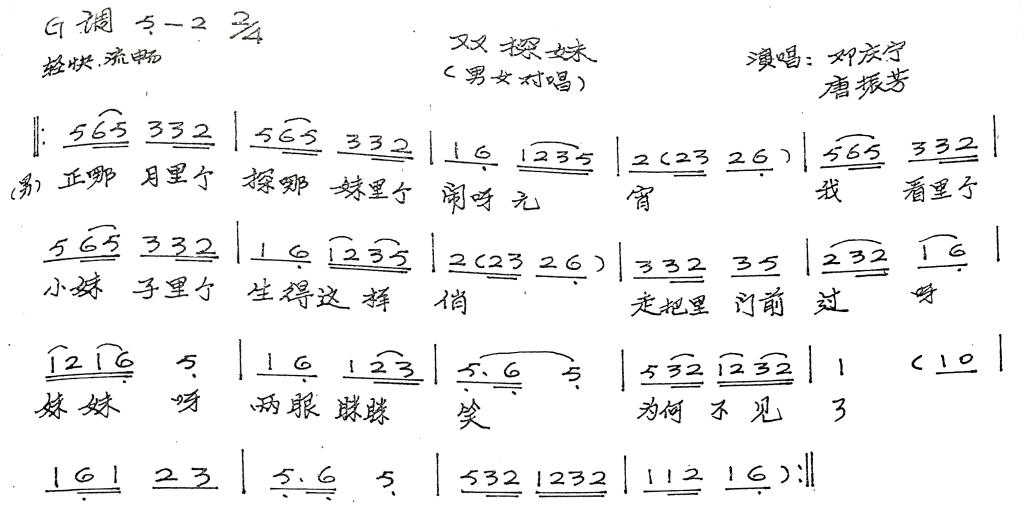 G调 5̣—2 2/4
轻快.流畅
双探妹
(男女对唱)
演唱: 邓庆宁
唐振芳
‖: 565 332 | 565 332 | 16̣ 1235 | 2(23 26̣) | 565 332 |
(男) 正哪 月里个 探哪 妹里个 闹呀元 宵 我 看里个
565 332 | 16̣ 1235 | 2(23 26̣) | 332 35 | 232 16̣ |
小妹 子里个 生得这样 俏 走把里 门前 过 呀
1216̣ 5̣ | 16̣ 123 | 5̣.6̣ 5̣ | 532 1232 | 1 (10 |
妹妹 呀 两眼 眯眯 笑 为何 不见 了
16̣1 23 | 5̣.6̣ 5̣ | 532 1232 | 112 16̣):‖